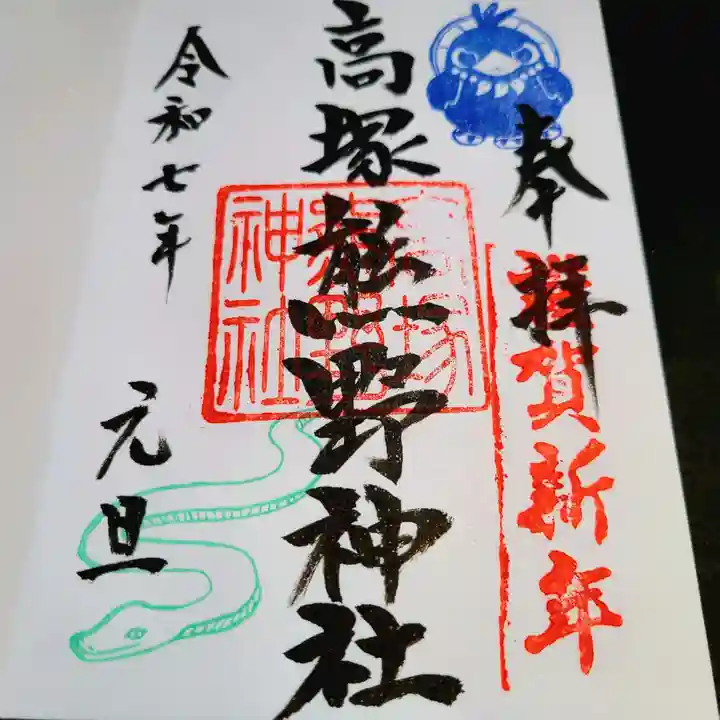 奉拝
賀新年
高塚熊野神社
高塚
熊野
神社
令和七年
元旦